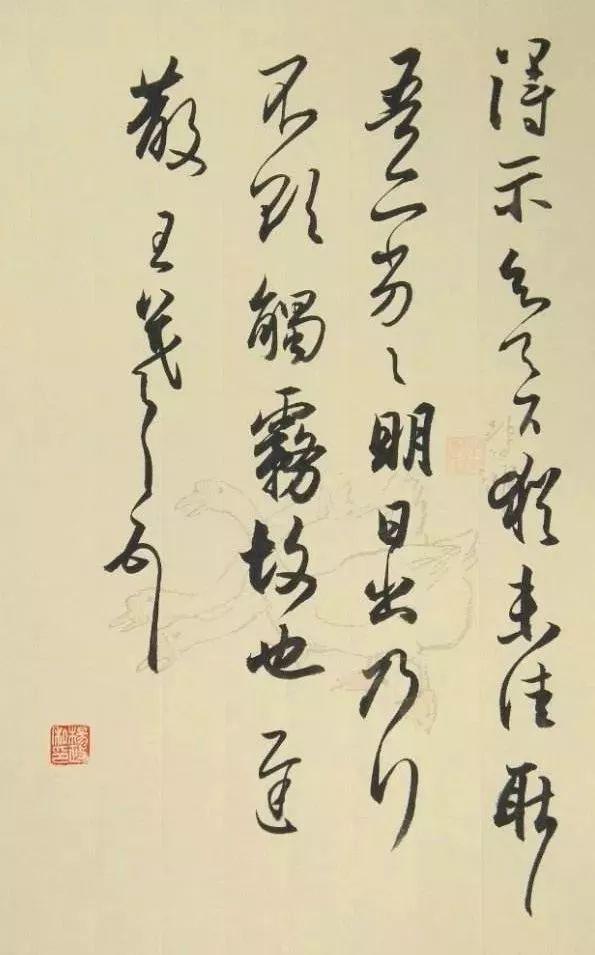 得示知足下猶未佳耿
吾亦劣々明日出乃行
不欲觸霧故也遲
散王羲之頓首